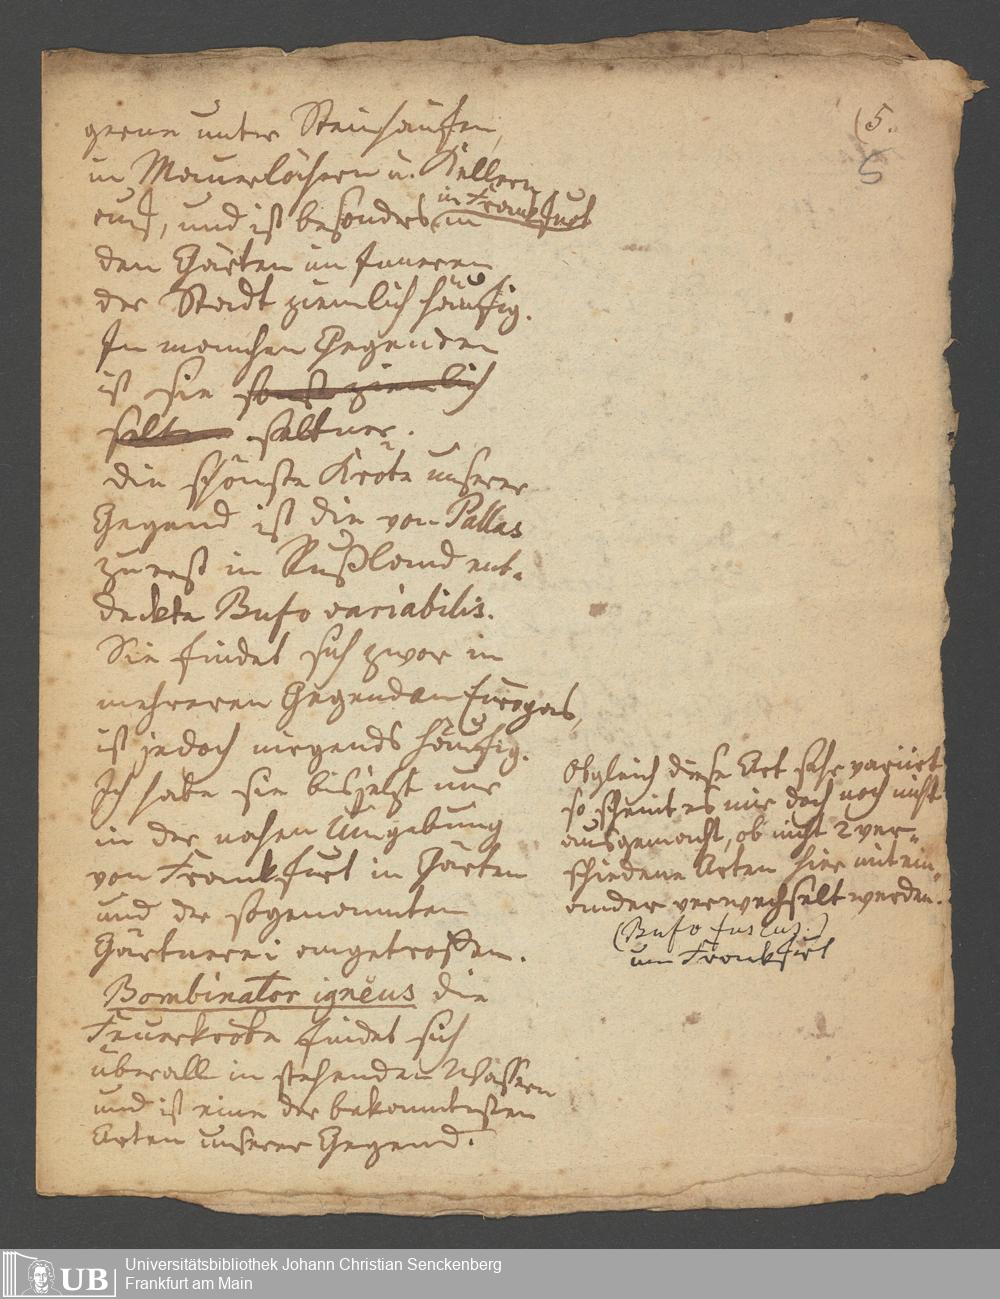 (5.
5
gerne unter Steinhäufen,
in Mauerlöchern u. Kellern
auf, und ist besonders in Frankfurt in
den Gärten im Inneren
der Stadt ziemlich häufig.
In manchen Gegenden
ist sie sonst ziemlich
selten seltner.
die schönste Kröte unserer
Gegend ist die von Pallas
zuerst in Rußland ent-
deckte Bufo variabilis.
Sie findet sich zwar in
mehreren Gegenden Europas,
ist jedoch nirgends häufig.
Ich habe sie bis jetzt nur
in der nahen Umgebung
von Frankfurt in Gärten
und der sogenannten
Gärtnerei angetroffen.
Bombinator igneus die
Feuerkröte findet sich
überall in stehenden Wassern
und ist eine der bekanntesten
Arten unserer Gegend.
Obgleich diese Art sehr variirt
so scheint es mir doch noch nicht
ausgemacht, ob nicht 2 ver-
schiedene Arten hier mitein-
ander verwechselt werden.
(Bufo fuscus.)
um Frankfurt
Universitätsbibliothek Johann Christian Senckenberg
Frankfurt am Main
UB